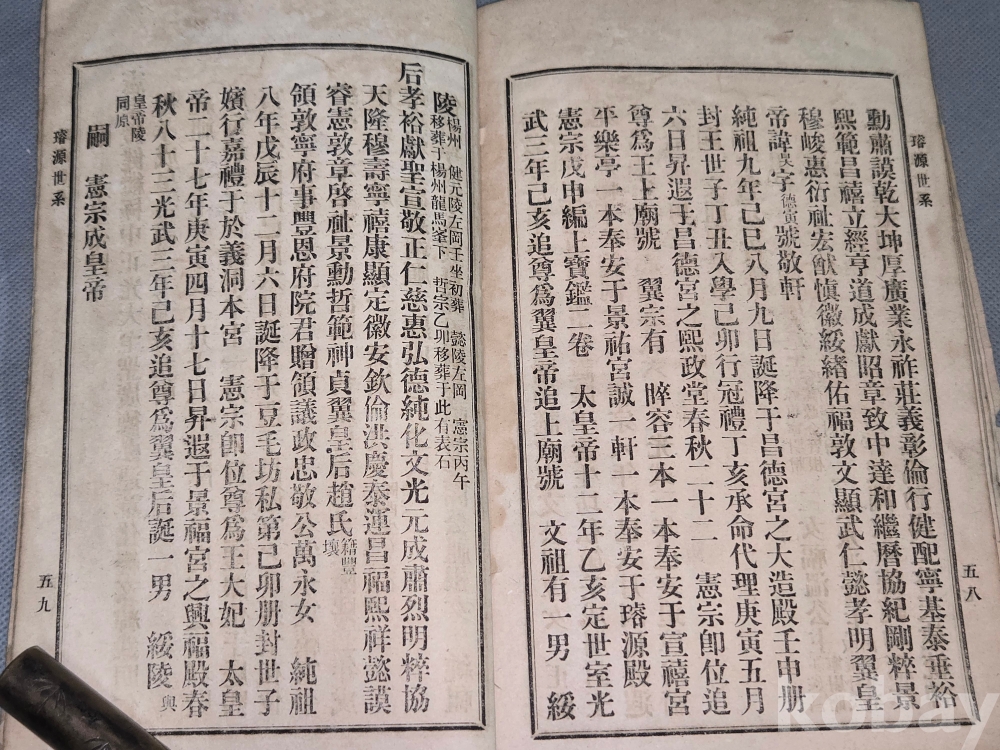 璿源世系
勳肅謨乾大坤厚廣業永祚莊義彰倫行健配寧基泰垂裕
熙範昌禧立經亨道成獻昭章致中達和繼曆協紀剛粹景
穆峻惠衍祉宏猷愼徽綏緖佑福敦文顯武仁懿孝明翼皇
帝諱旲字德寅號敬軒
純祖九年己巳八月九日誕降于昌德宮之大造殿壬申册
封王世子丁丑入學己卯行冠禮丁亥承命代理庚寅五月
六日昇遐于昌德宮之熙政堂春秋二十二 憲宗卽位追
尊爲王上廟號 翼宗有 睟容三本一本奉安于宣禧宮
平樂亭一本奉安于景祐宮誠一軒一本奉安于璿源殿
憲宗戊申編上寶鑑二卷 太皇帝十二年乙亥定世室光
武三年己亥追尊爲翼皇帝追上廟號 文祖有一男 綏
五八
陵楊州 健元陵左岡壬坐初葬 懿陵左岡 憲宗丙午
移葬于楊州龍馬峯下 哲宗乙卯移葬于此有表石
后孝裕獻聖宣敬正仁慈惠弘德純化文光元成肅烈明粹協
天隆穆壽寧禧康顯定徽安欽倫洪慶泰運昌福熙祥懿謨
睿憲敦章啓祉景勳哲範神貞翼皇后趙氏籍豐
壤
領敦寧府事豐恩府院君贈領議政忠敬公萬永女 純祖
八年戊辰十二月六日誕降于豆毛坊私第己卯册封世子
嬪行嘉禮于於義洞本宮 憲宗卽位尊爲王大妃 太皇
帝二十七年庚寅四月十七日昇遐于景福宮之興福殿春
秋八十三光武三年己亥追尊爲翼皇后誕一男 綏陵與
皇帝陵
同原
嗣 憲宗成皇帝
璿源世系
五九
kobay